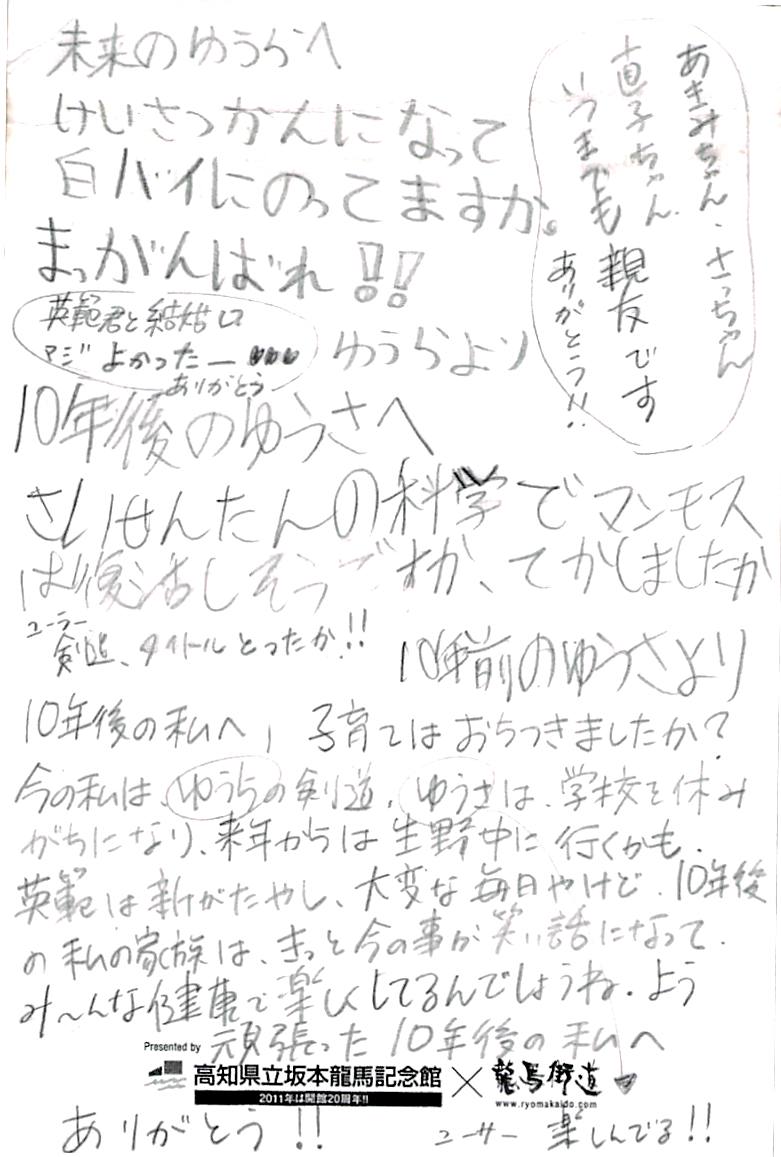 未来のゆうらへ
けいさつかんになって
白バイにのってますか。
まっがんばれ!!
ゆうらより
あきみちゃん、さっちゃん
直子ちゃん
いつまでも親友です
ありがとう!!
英範君と結婚し
マジよかったー
ありがとう
10年後のゆうさへ
さいせんたんの科学でマンモス
は復活しそうですが、てかしましたか
10年前のゆうさより
ユーラー
剣道、タイトルとったか!!
10年後の私へ、子育てはおちつきましたか?
今の私は、ゆうらの剣道、ゆうさは、学校を休み
がちになり、来年からは生野中に行くかも、
英範は新がたやし、大変な毎日やけど、10年後
の私の家族は、きっと今の事が笑い話になって、
み〜んな健康で楽しくしてるんでしょうね。よう
頑張った10年後の私へ
Presented by
高知県立坂本龍馬記念館
2011年は開館20周年!!
×
龍馬街道
www.ryomakaido.com
ありがとう!!
ユーサー 楽しんでる!!